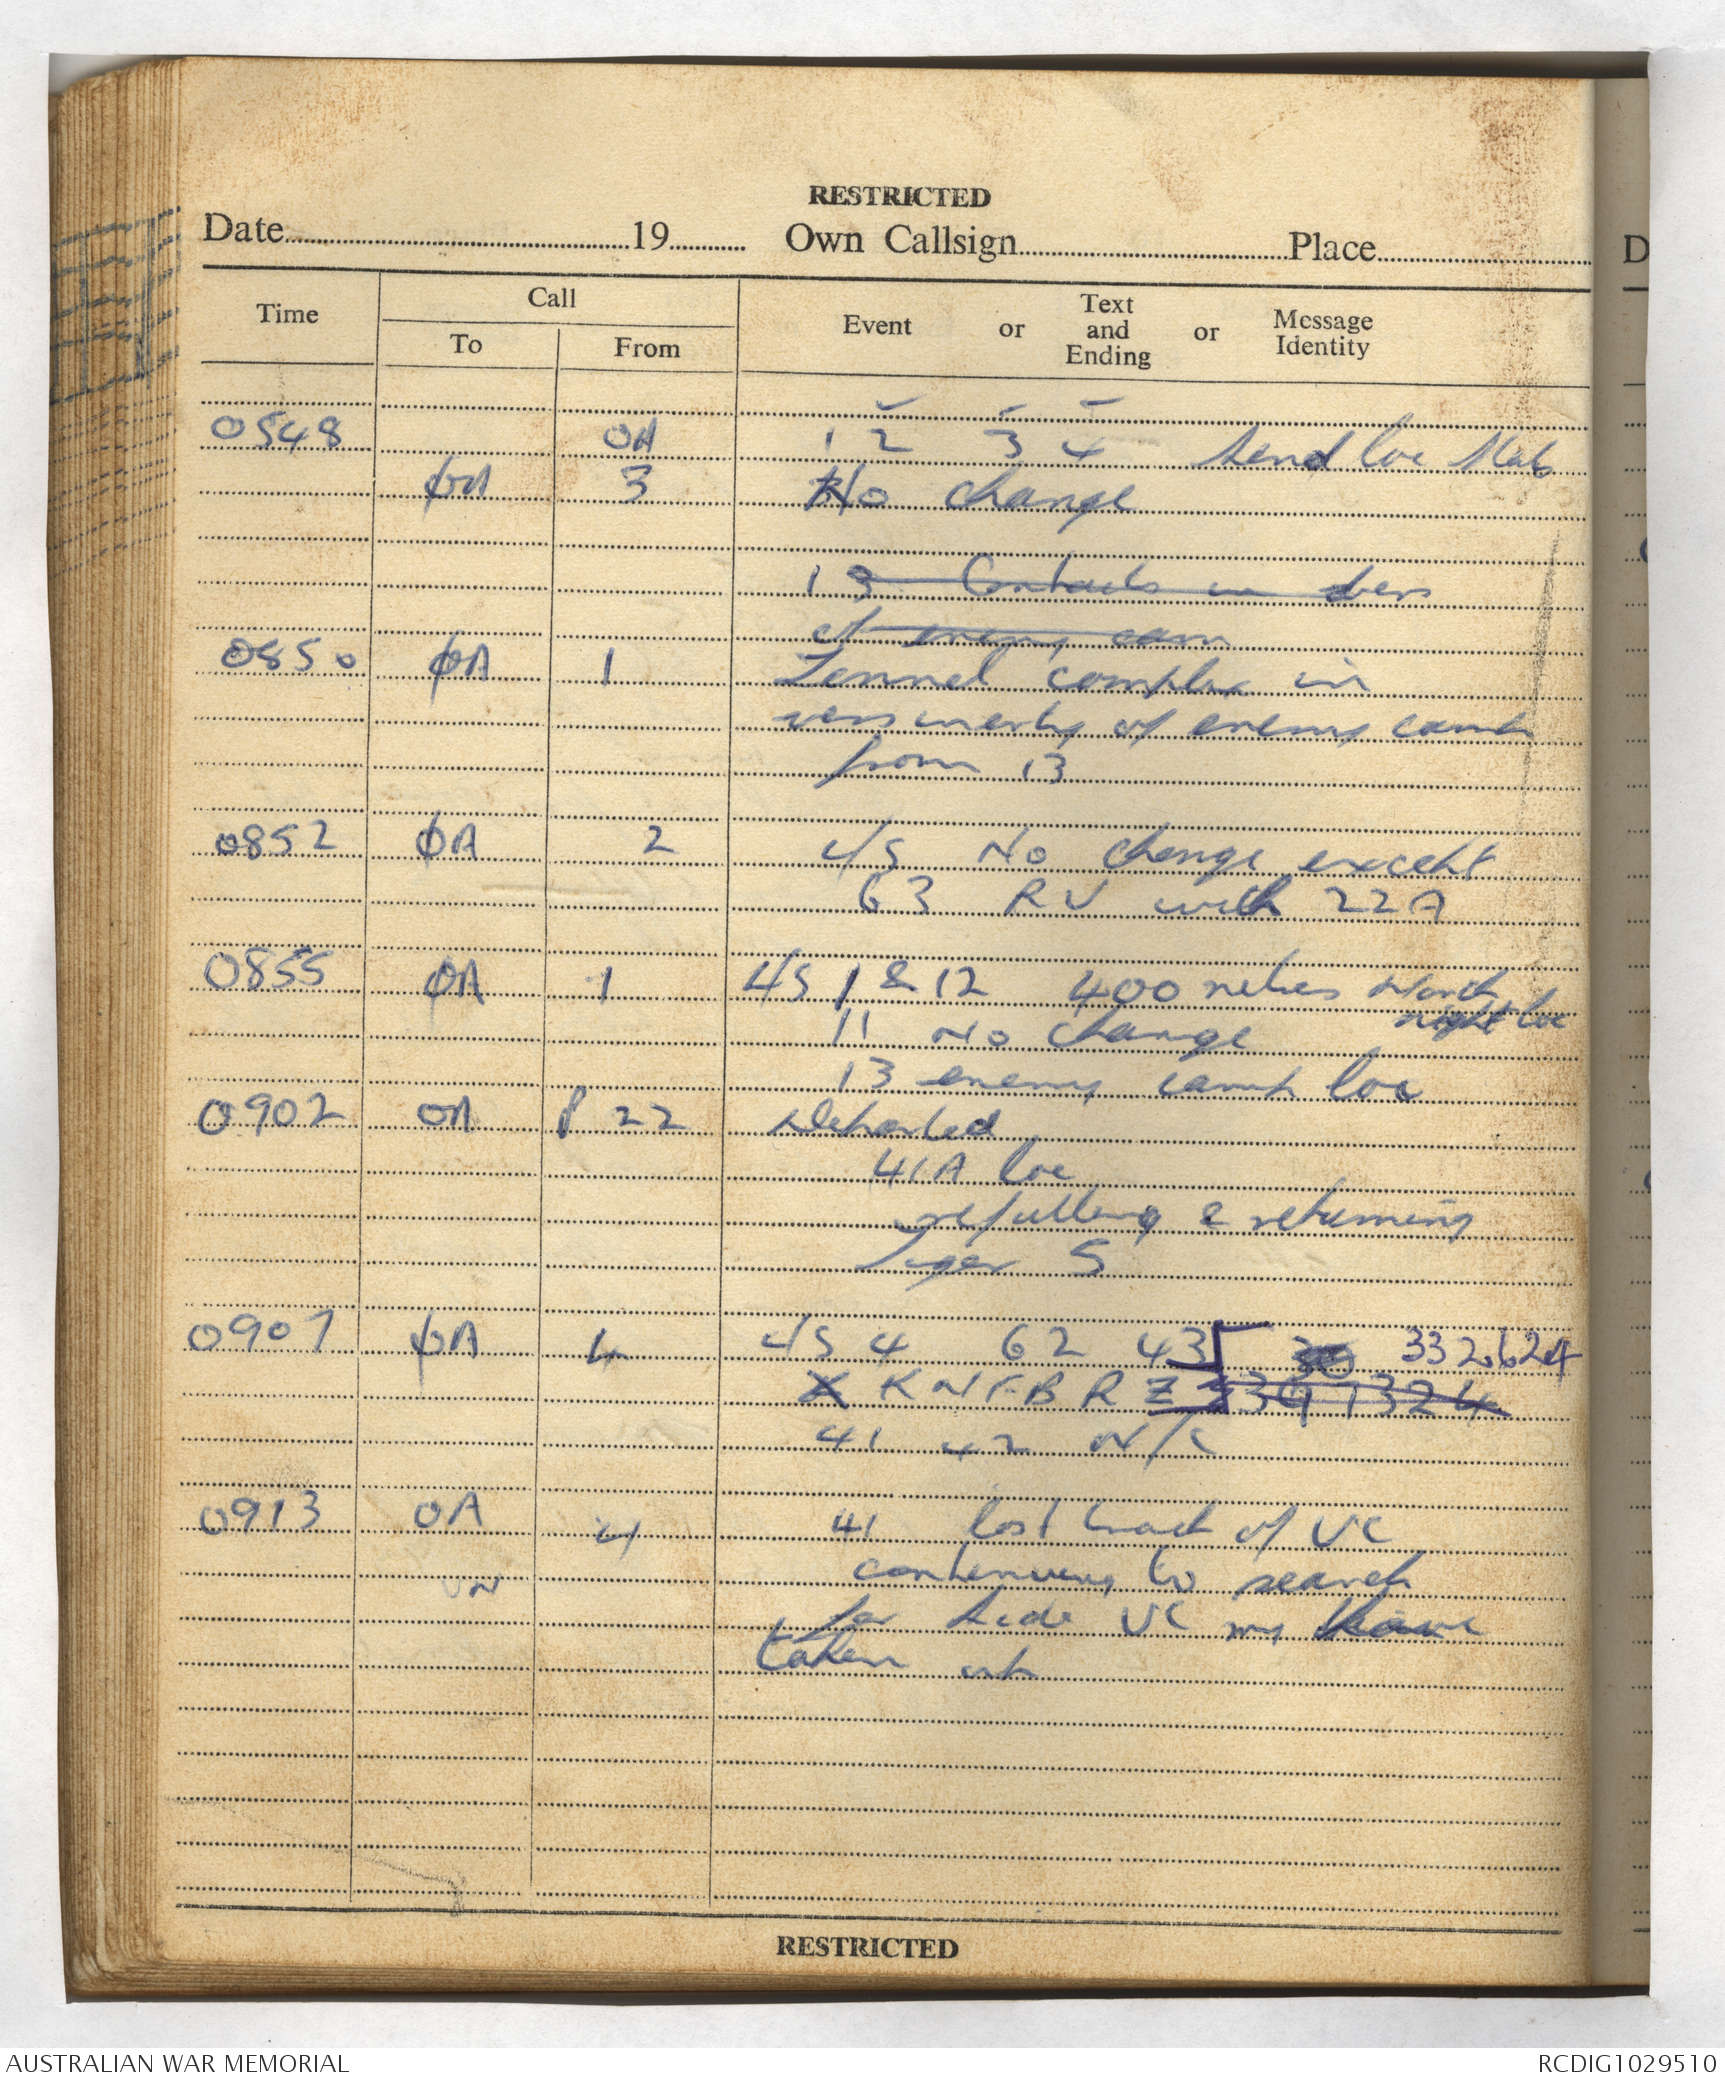 RESTRICTED
Date 19 Own Callsign Place
Time Call Event or Text and Ending or Message Identity
To From
0548 0A 1 2 3 4 Send loc Stats
0A 3 No change
13 Contacts in
of enemy cam
0850 0A 1 Tennel complex in
of enemy camp
from 13
0852 0A 2 4/S No change except
63 RV with 22A
0855 0A 1 4/S 1 & 12 400 metres North
night loc
11 No change
13 enemy camp loc
0902 0A P 22 Departed
41A loc
refulling & returning
5
0907 0A 4 4/S 4 62 43 332624
X K N F B R Z
41 42 N/C
0913 0A 4 41 lost track of VC
continuing to search
for hide VC my have
taken up
RESTRICTED
AUSTRALIAN WAR MEMORIAL RCDIG1029510